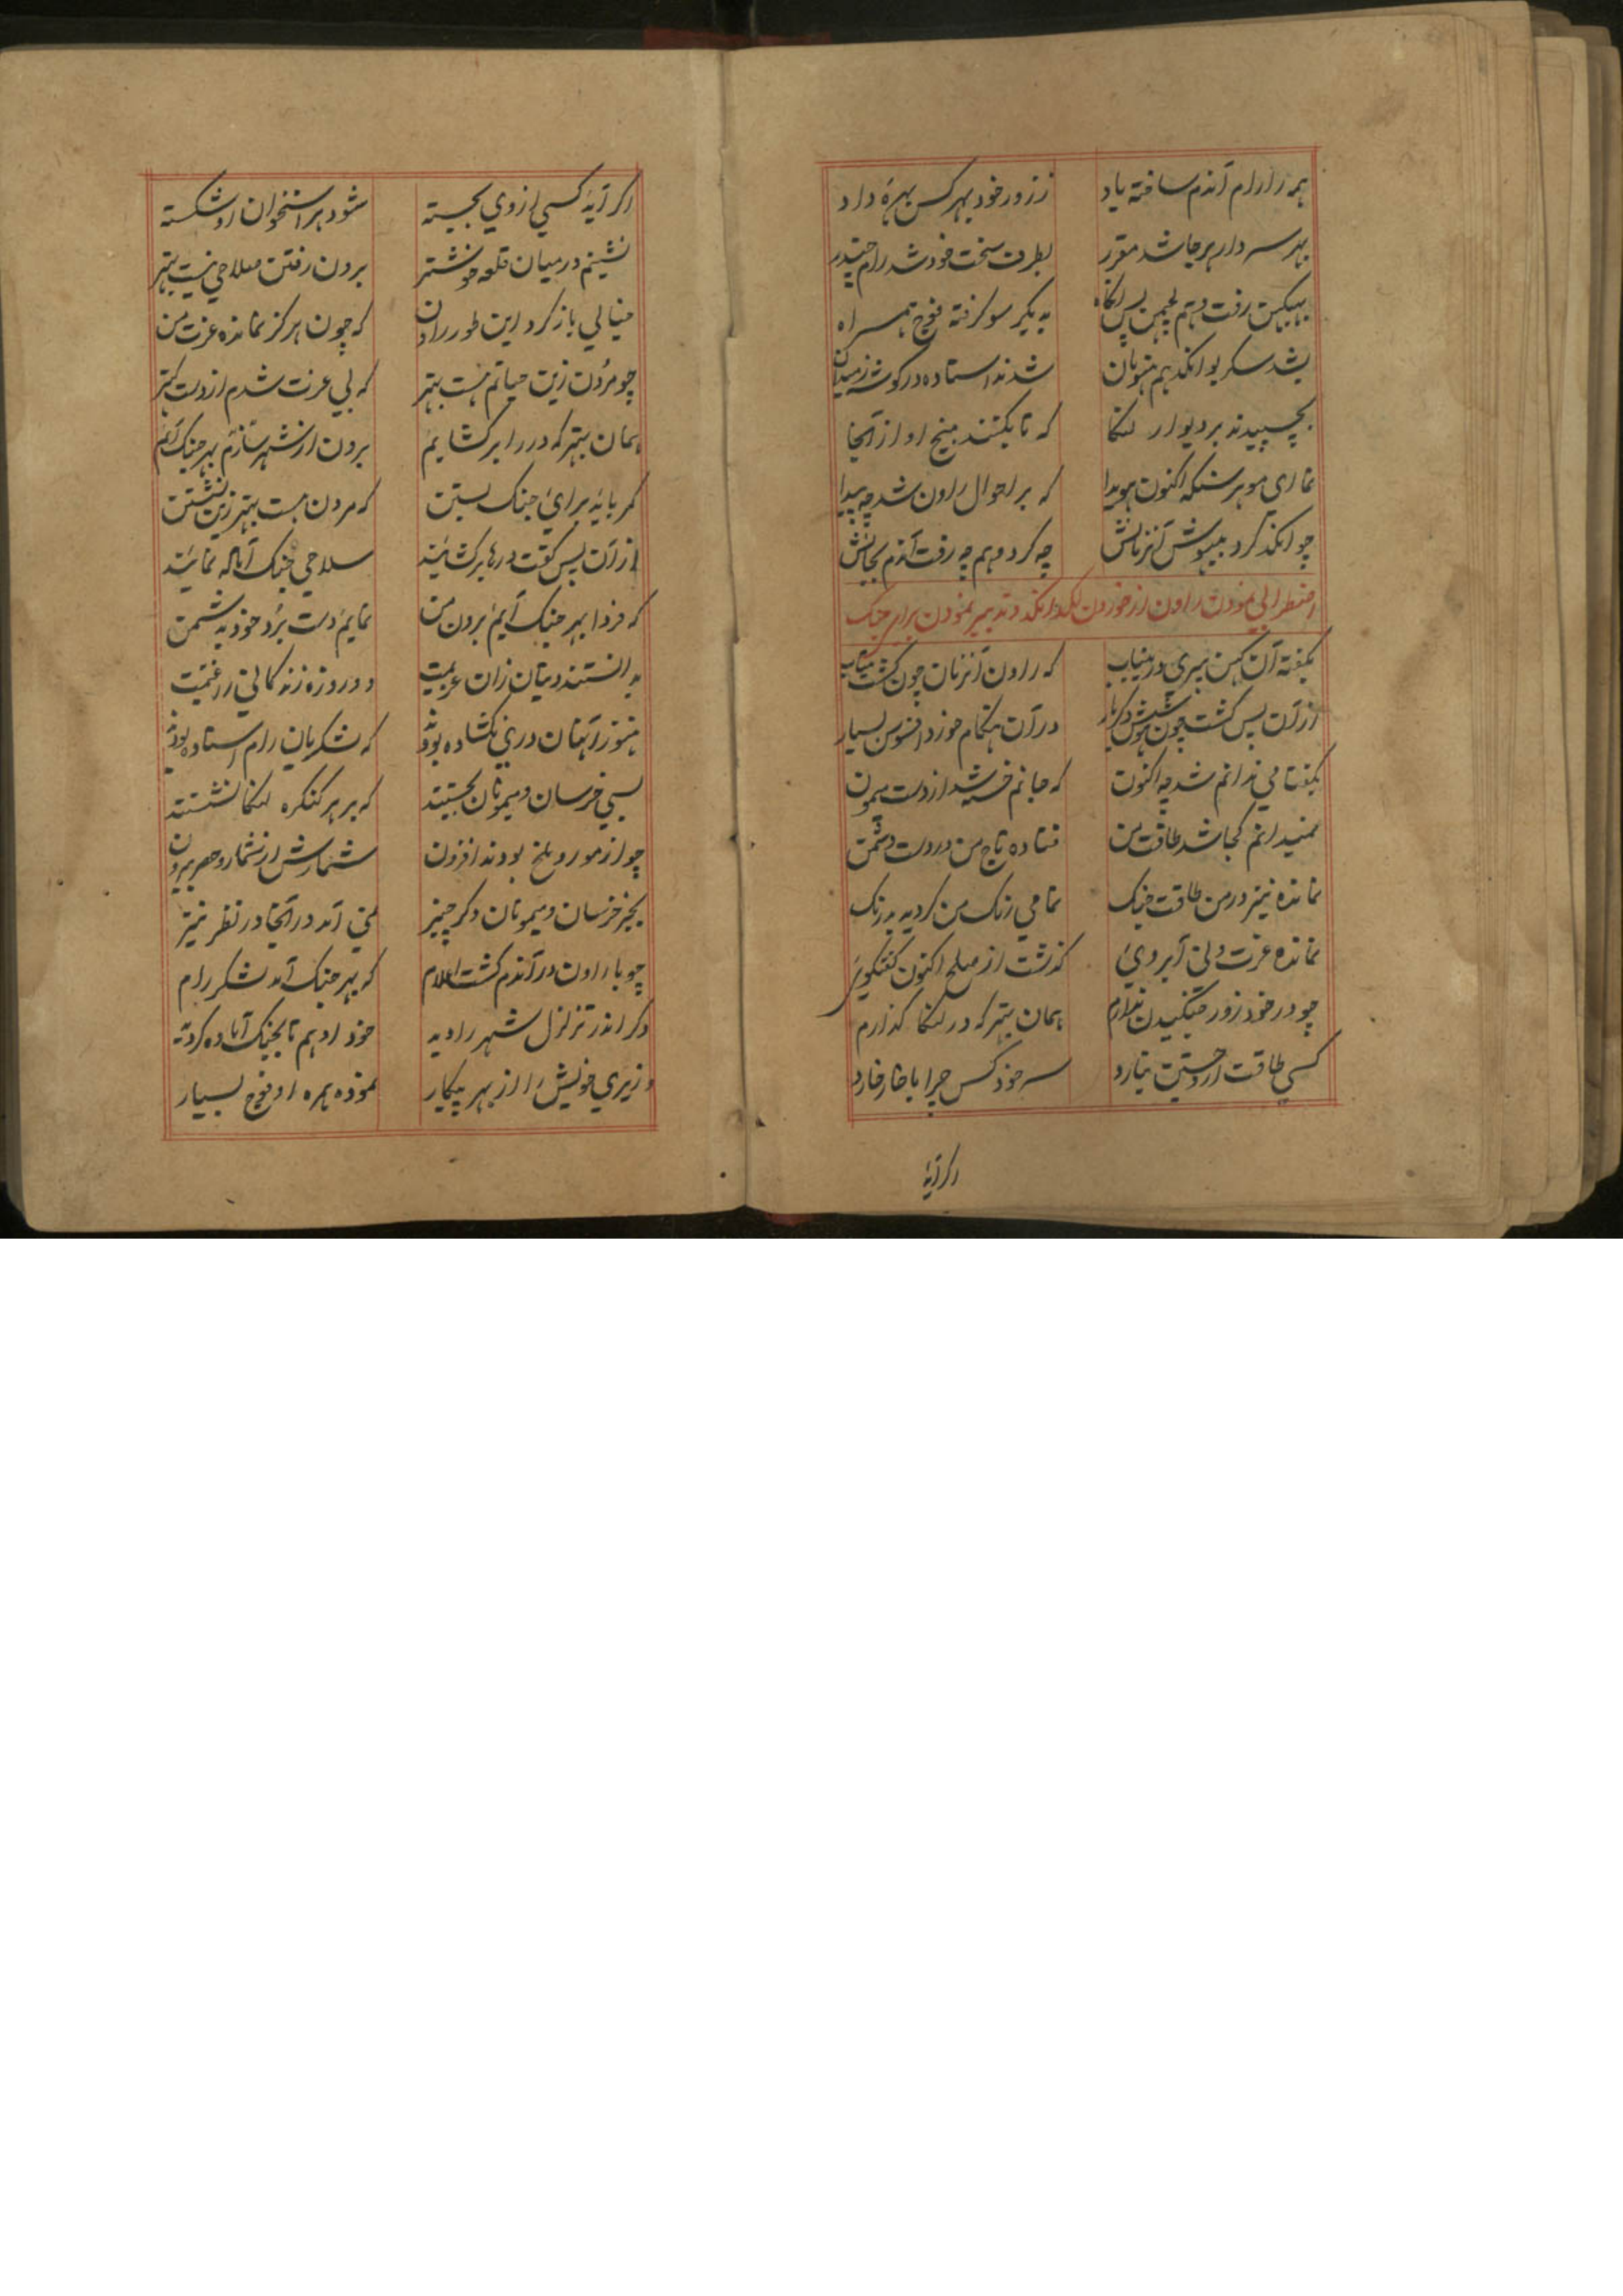 همه را رام آندم ساخته یاد
ز زور خود بهر کس بهره داد
بهر سردار هر جا شد مقرر
بطرف سخت خود شد رام چندر
بهبیکن رفت و هم لچمن پس انکاه
به یکر سو کرفته فوج همراه
شد سکریو انکد هم هنومان
شدند استاده در کوشه ز میدان
بچسپیدند بر دیوار لنکا
که تا بکنند بیخ او از آنجا
نماری موبر سنکه اکنون هویدا
که بر احوال راون شد چه پیدا
چو انکد کرد بیهوش آنزمانش
چه کرد و هم چه رفت آندم بجانش
اضطرابی نمودن راون از خوردن لکد انکد و تدبیر نمودن برای جنک
بکفته آن کهن پیری در این باب
که راون آنزمان چون کشت بیتاب
از آن پس کشت چون هوشش دکربار
در آن هنکام خورد افسوس بسیار
بکفتا می ندانم شد چه اکنون
که جانم خسته شد از دست میمون
نمیدانم کجا شد طاقت من
فتاده تاج من در دست دشمن
نمانده نیز در من طاقت جنک
تمامی رنک من کردیه بدرنک
نمانده عزت و نی آبروئ
کذشت از صلح اکنون کفتکوئ
چو در خود زور جنکیدن نیارم
همان بهتر که در لنکا کذارم
کسی طاقت ار جستن نیارد
سر خود کس چرا با خار خارد
اکر آیه
اکر آیه کسی از وی بجسته
شود هر استخوان او شکسته
نشینم در میان قلعه خوشتر
برون رفتن صلاحی نیست بهتر
خیالی باز کرد این طور راون
که چون هرکز نمانده عزت من
چو مردن زین حیاتم هست بهتر
که بی عزت شدم از دست کهتر
همان بهتر که در را بر کشایم
برون از شهر سازم بهر جنک آیم
کمر بایه برائ جنک بستن
که مردن هست بهتر زین نشستن
از آن پس کفت درها بر کشائید
سلاحی جنک آماده نمائید
که فردا بهر جنک آیم برون من
نمایم دست برد خود به دشمن
بدانستند دیتان زان عزیمت
دو روزه زندکانی را غنیمت
هنوز آنهان دری نکشاده بودند
که لشکریان رام استاده بودند
بسی خرسان و میمونان بجستند
که بر هر کنکره لنکا نشستند
چو از مور و ملخ بودند افزون
شمارش از شمار و حصر بیرون
بجز خرسان و میمونان دکر چیز
نمی آمد در آنجا در نظر نیز
چو با راون در آندم کشت اعلام
که بهر جنک آمد لشکر رام
دکر اندر تزلزل شهر را دید
خود او هم تا بجنک آماده کردید
وزیری خویش را از بهر پیکار
نموده همره او فوج بسیار